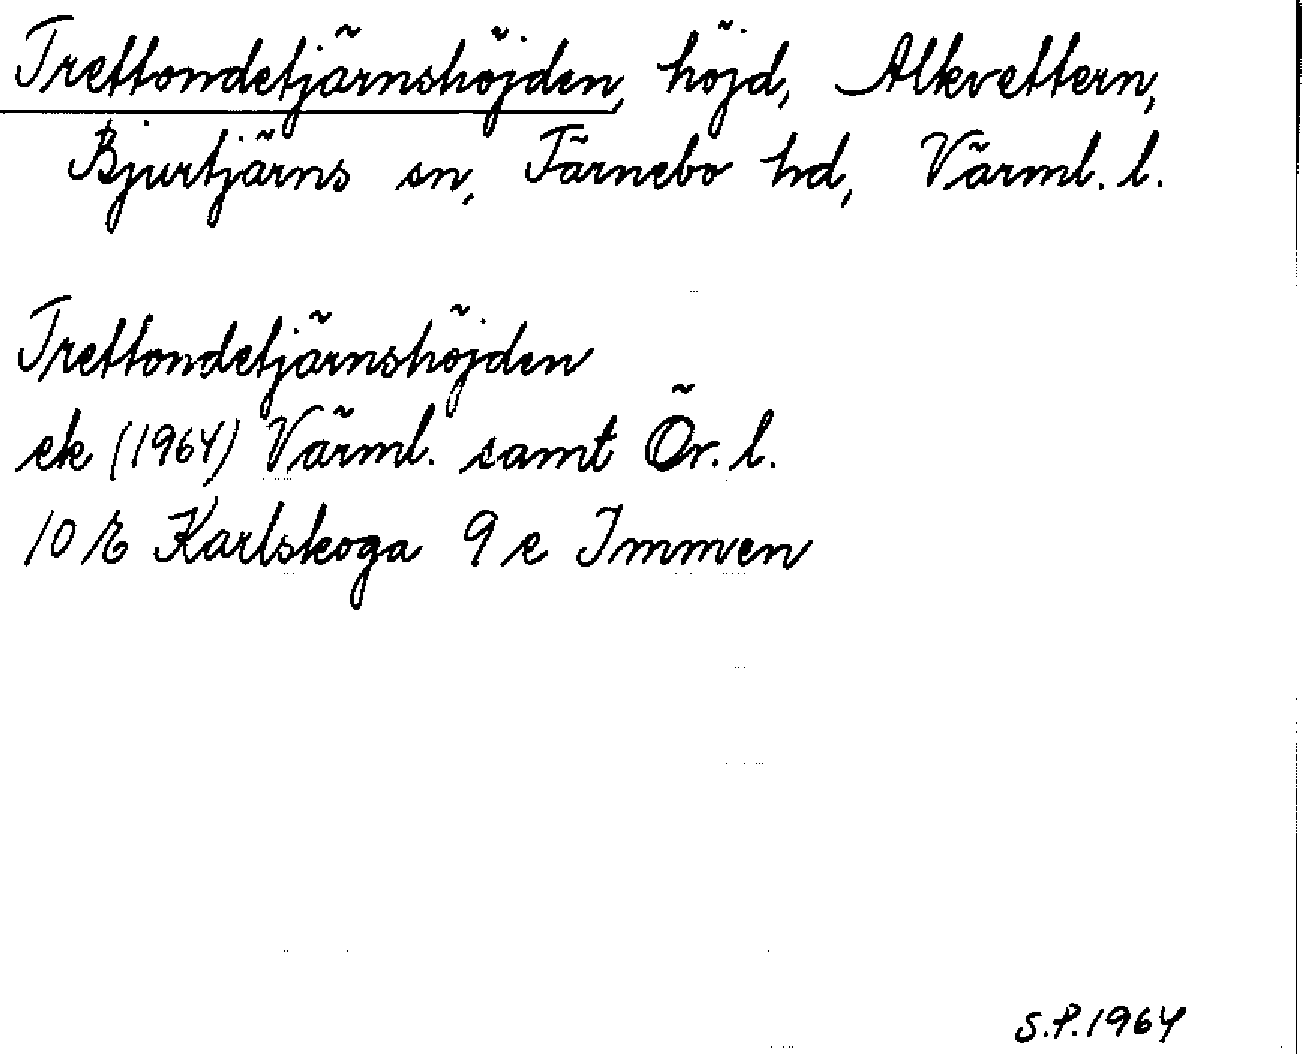 Trettondetjärnshöjden, höjd, Alkvettern,
Bjurtjärns sn, Färnebo hd, Värml. l.
Trettondetjärnshöjden
ek (1964) Värml. samt Ör. l.
10 E Karlskoga 9 e Immen
S.P. 1964